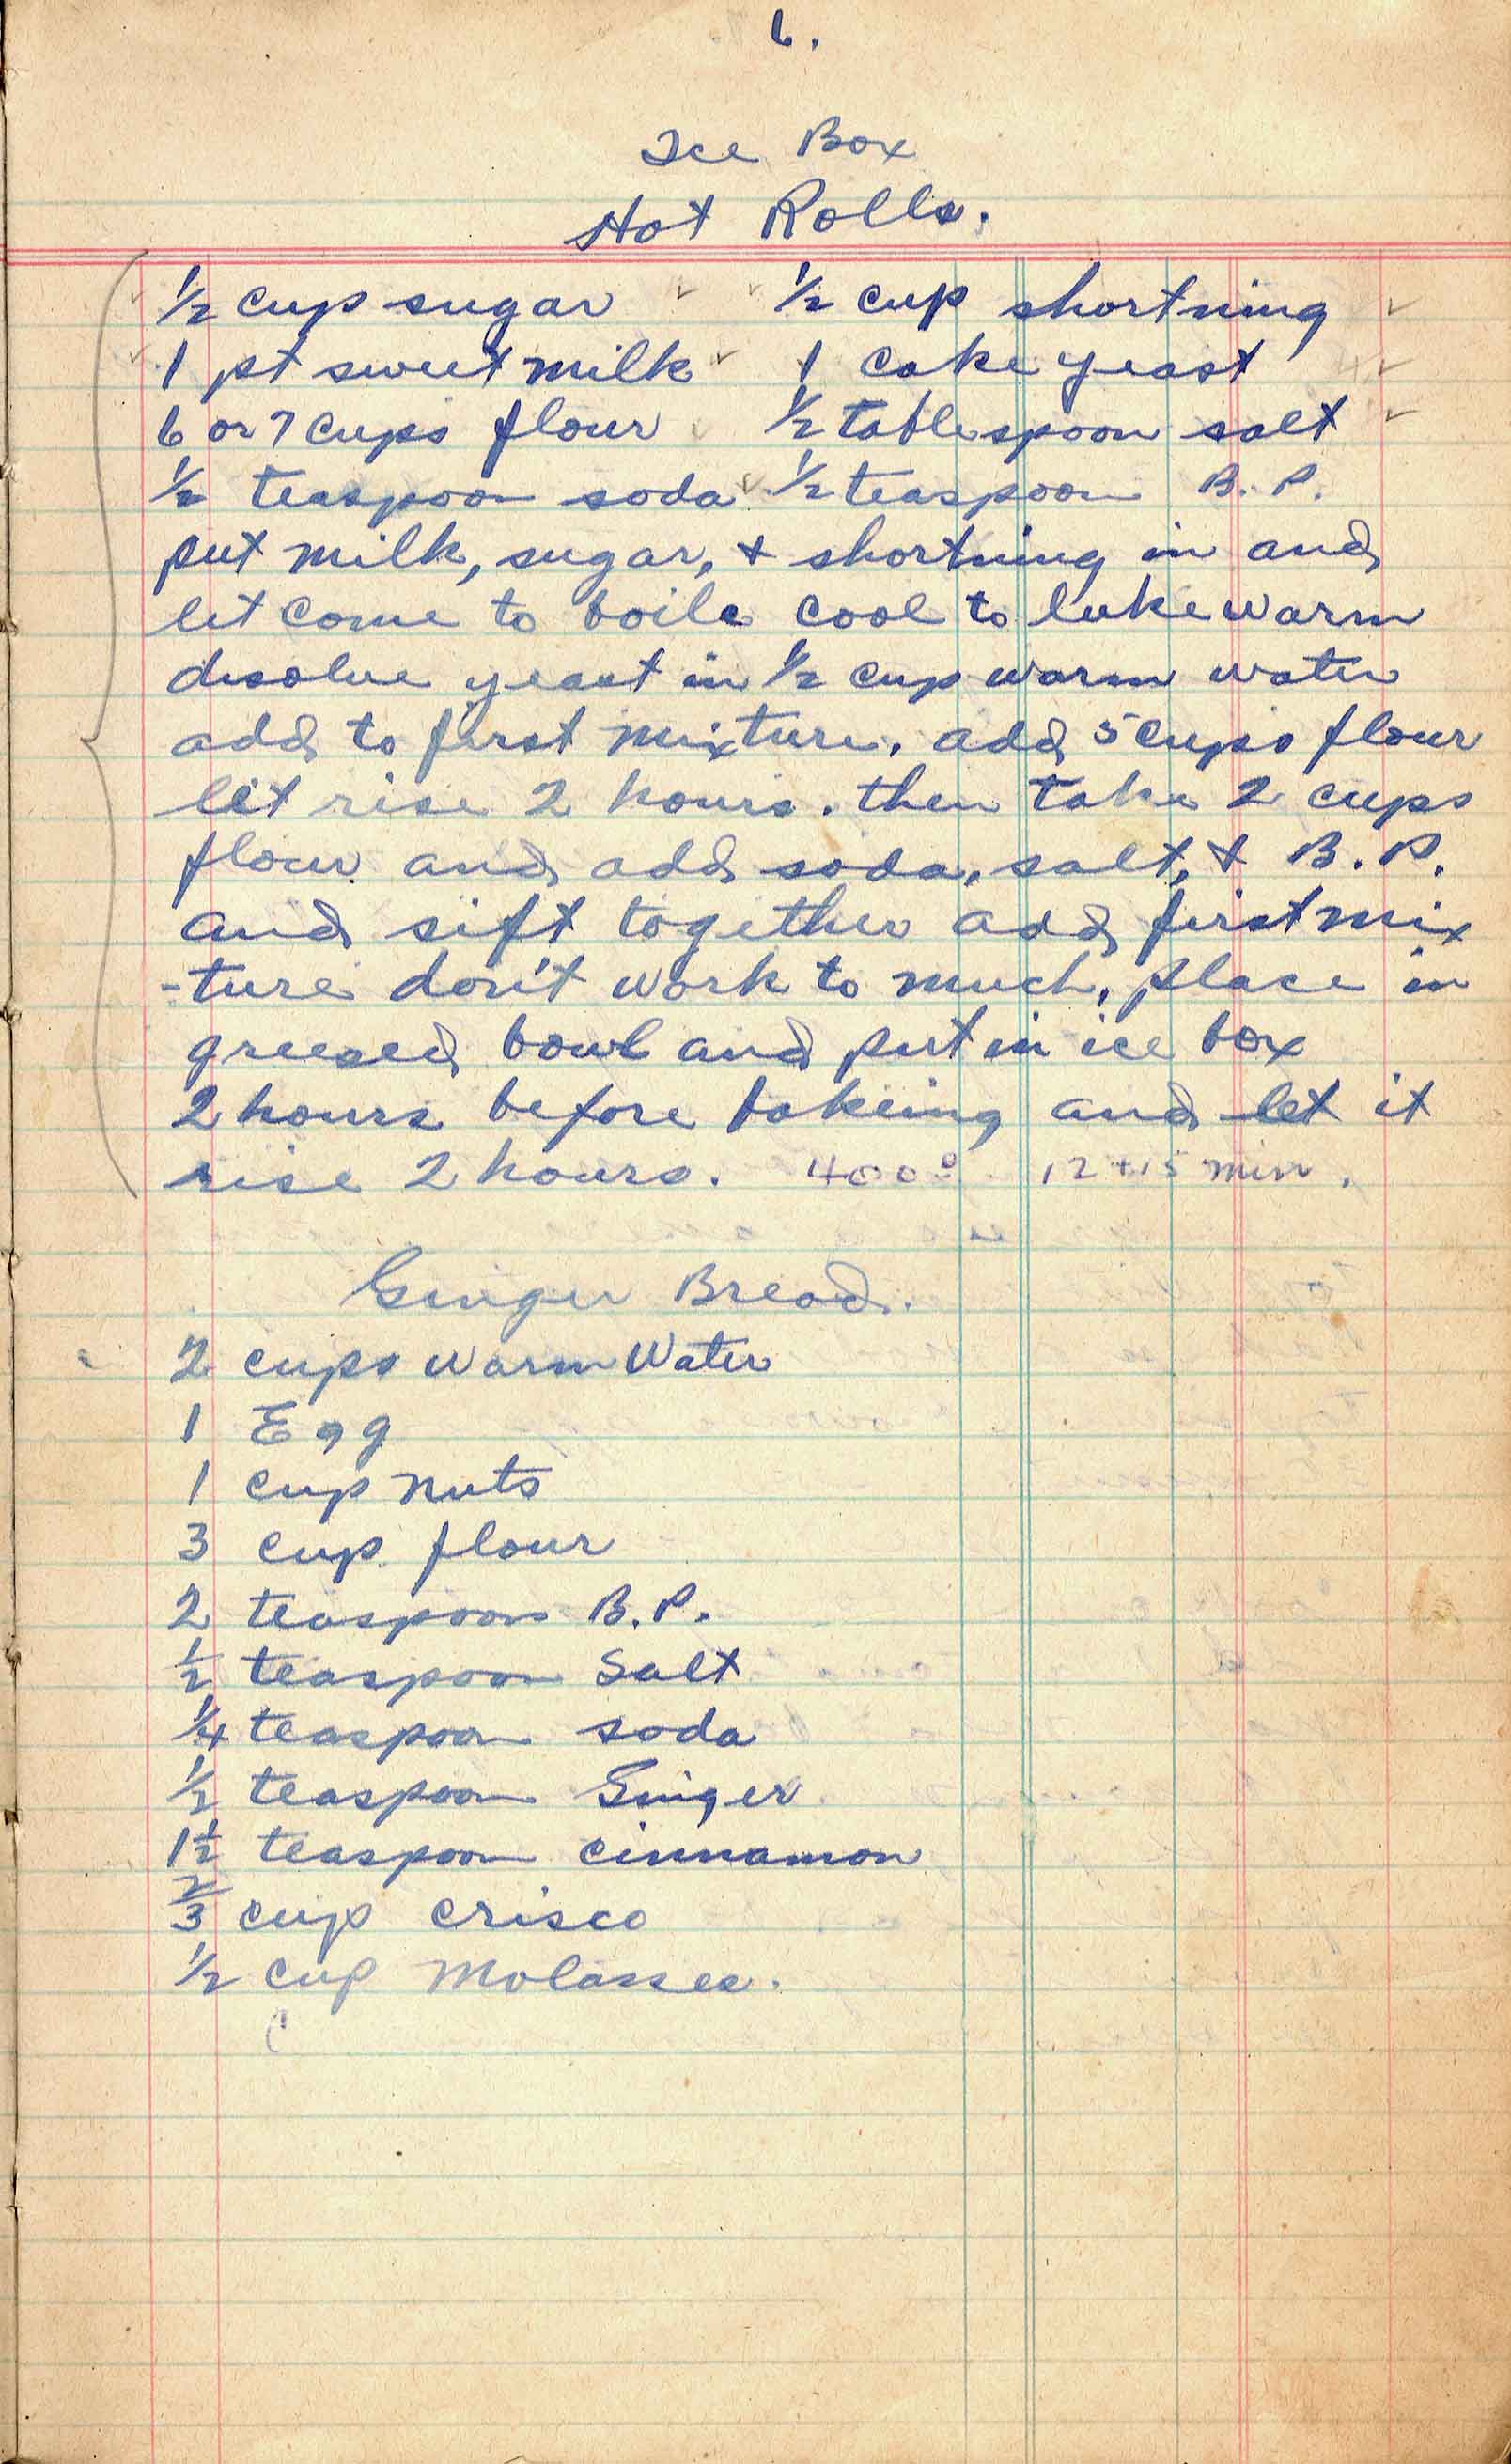 6.
Ice Box
Hot Rolls.
½ cup sugar ½ cup shortning
1 pt sweet milk 1 cake yeast
6 or 7 cups flour ½ tablespoon salt
½ teaspoon soda ½ teaspoon B.P.
put milk, sugar, + shortning in and
let come to boile cool to luke warm
disolve yeast in ½ cup warm water
add to first mixture. add 5 cups flour
let rise 2 hours. then take 2 cups
flour and add soda, salt, + B.P.
and sift together add first mix
-ture don't work to much, place in
greesed bowl and put in ice box
2 hours before bakeing and let it
rise 2 hours. 400° 12 + 15 min.
Ginger Bread.
2 cups warm Water
1 Egg
1 cup nuts
3 cup flour
2 teaspoons B.P.
½ teaspoon Salt
¼ teaspoon soda
½ teaspoon Ginger
1½ teaspoon cinnamon
⅔ cup crisco
½ cup Molasses.